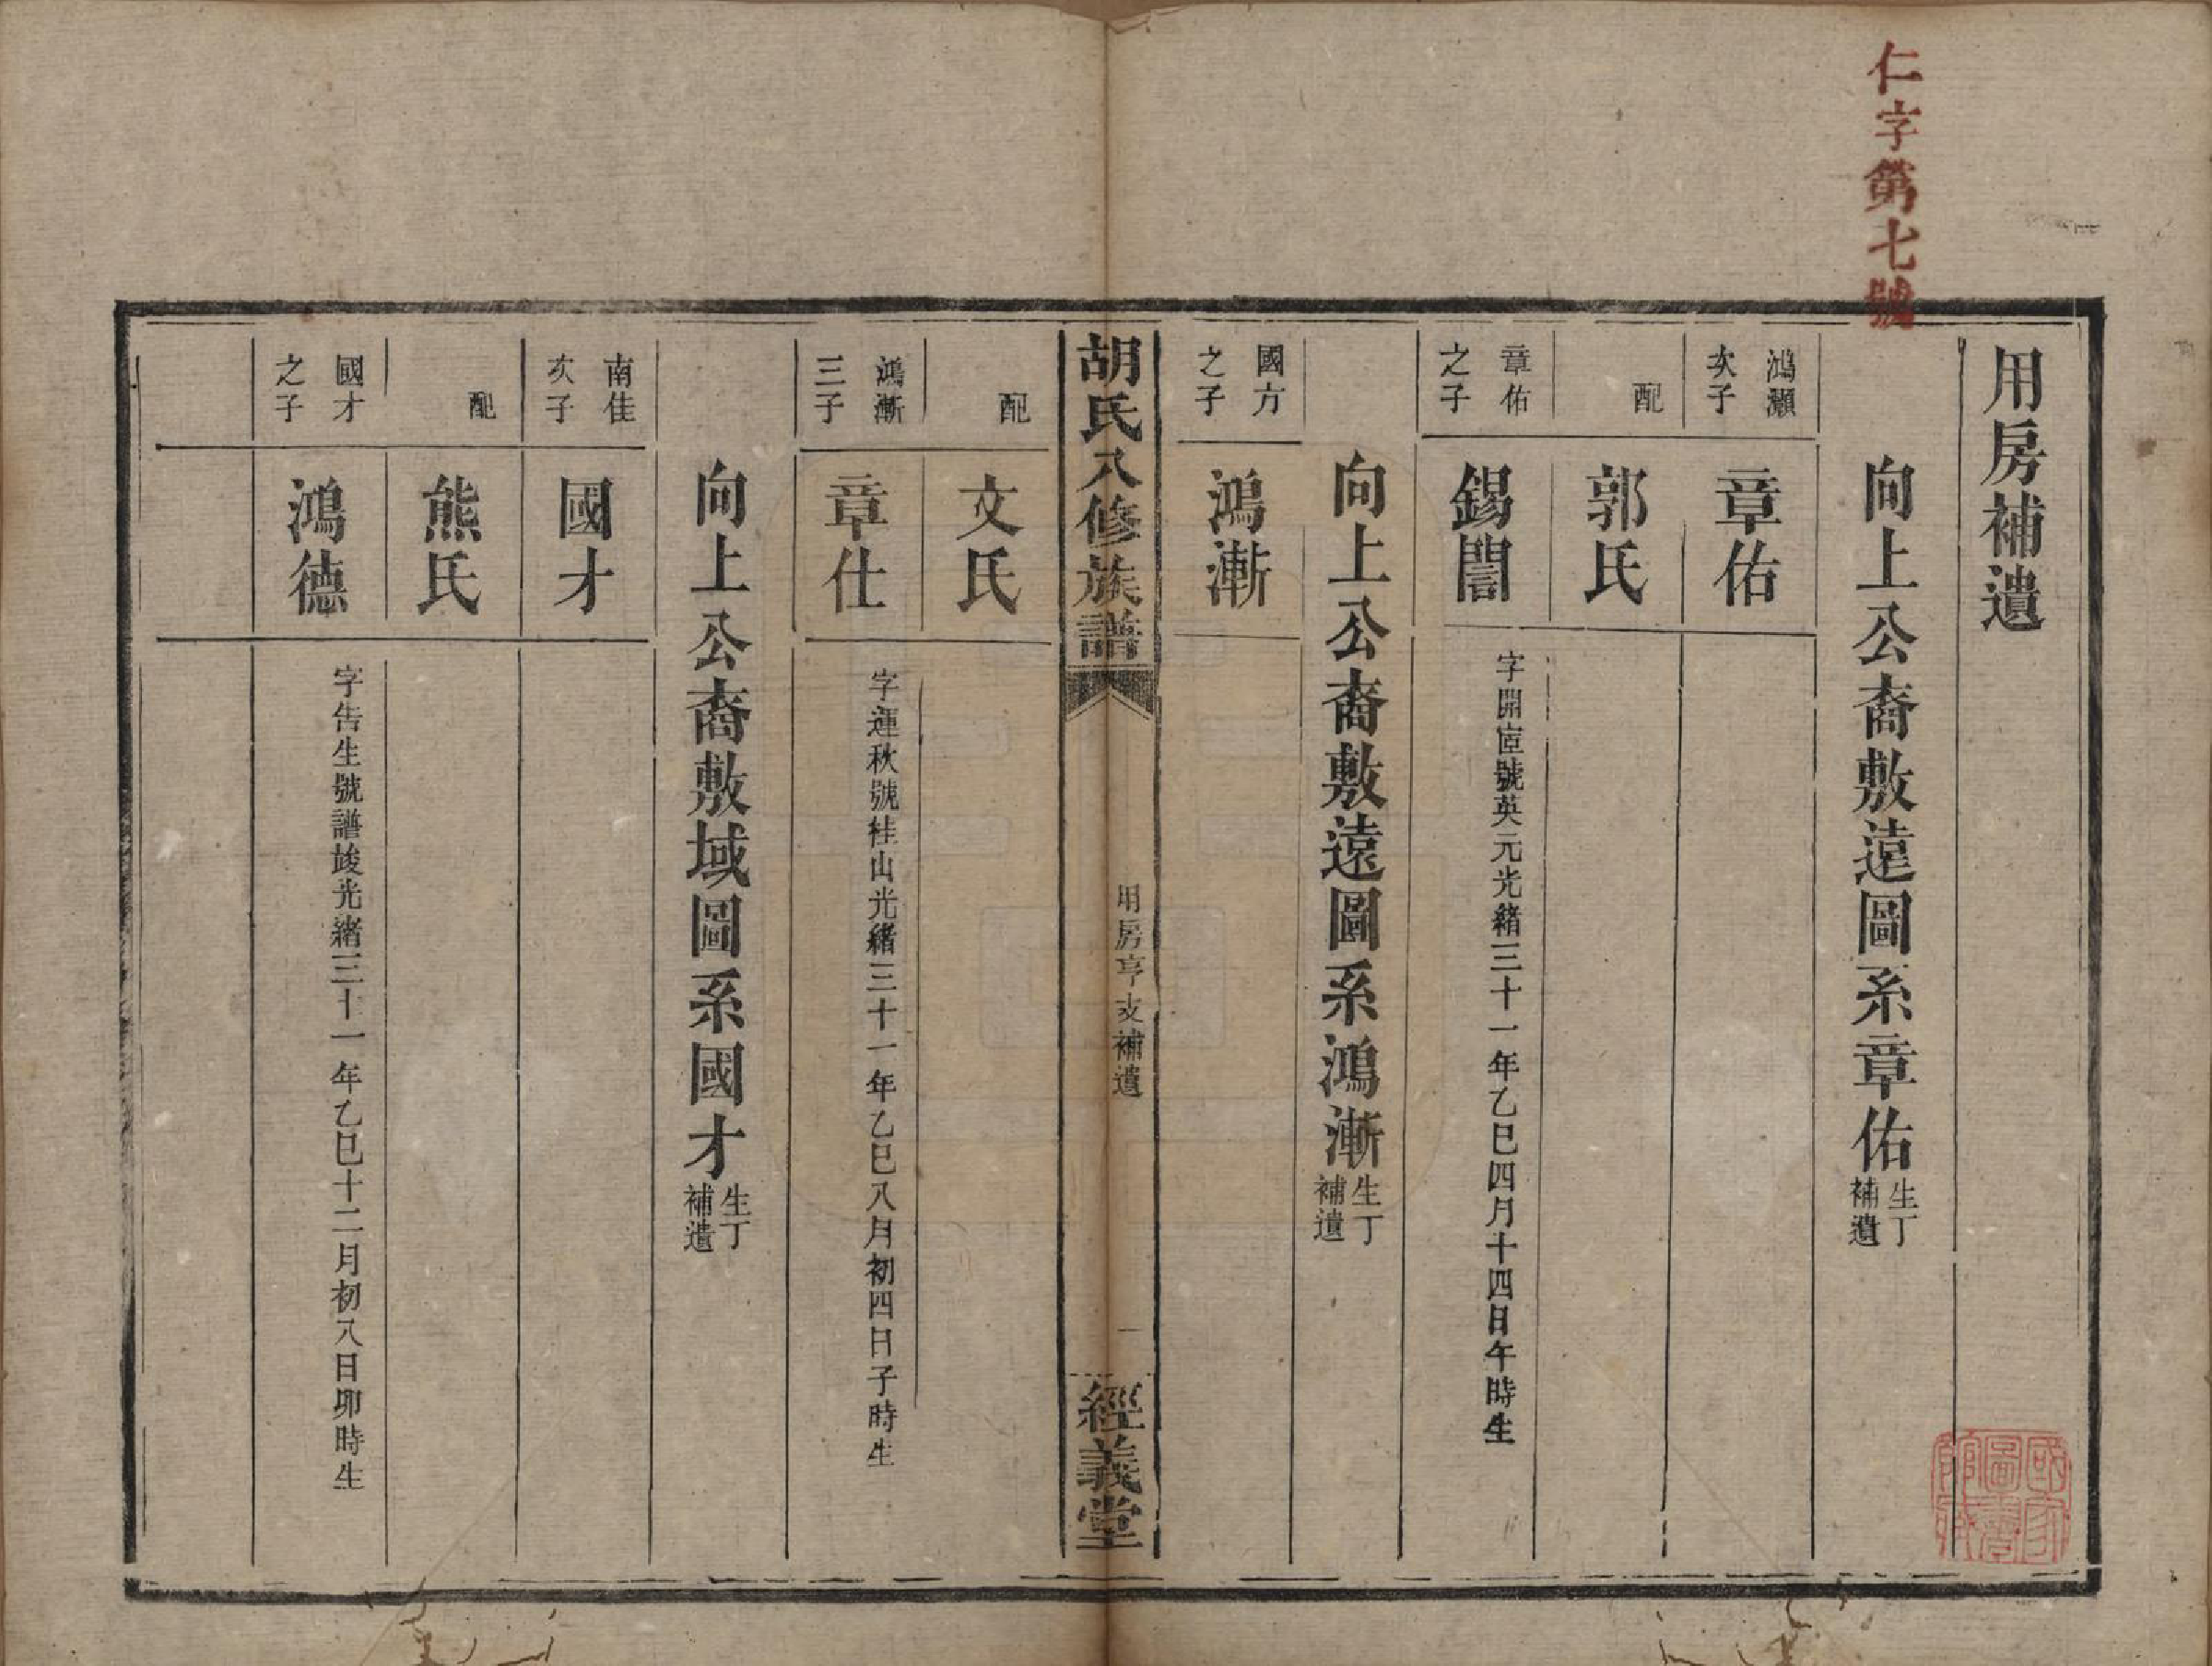 仁字第七號
用房補遺
向上公裔敷遠圖系章佑生丁補遺
鴻灝次子
章佑
配
郭氏
章佑之子
錫誾
字開宦號英元光緒三十一年乙巳四月十四日午時生
向上公裔敷遠圖系鴻漸生丁補遺
國方之子
鴻漸
胡氏八修族譜
用房亨支補遺
一
經義堂
配
文氏
鴻漸三子
章仕
字運秋號桂山光緒三十一年乙巳八月初四日子時生
向上公裔敷域圖系國才生丁補遺
南佳次子
國才
配
熊氏
國才之子
鴻德
字告生號譜竣光緒三十一年乙巳十二月初八日卯時生
國家圖書館藏